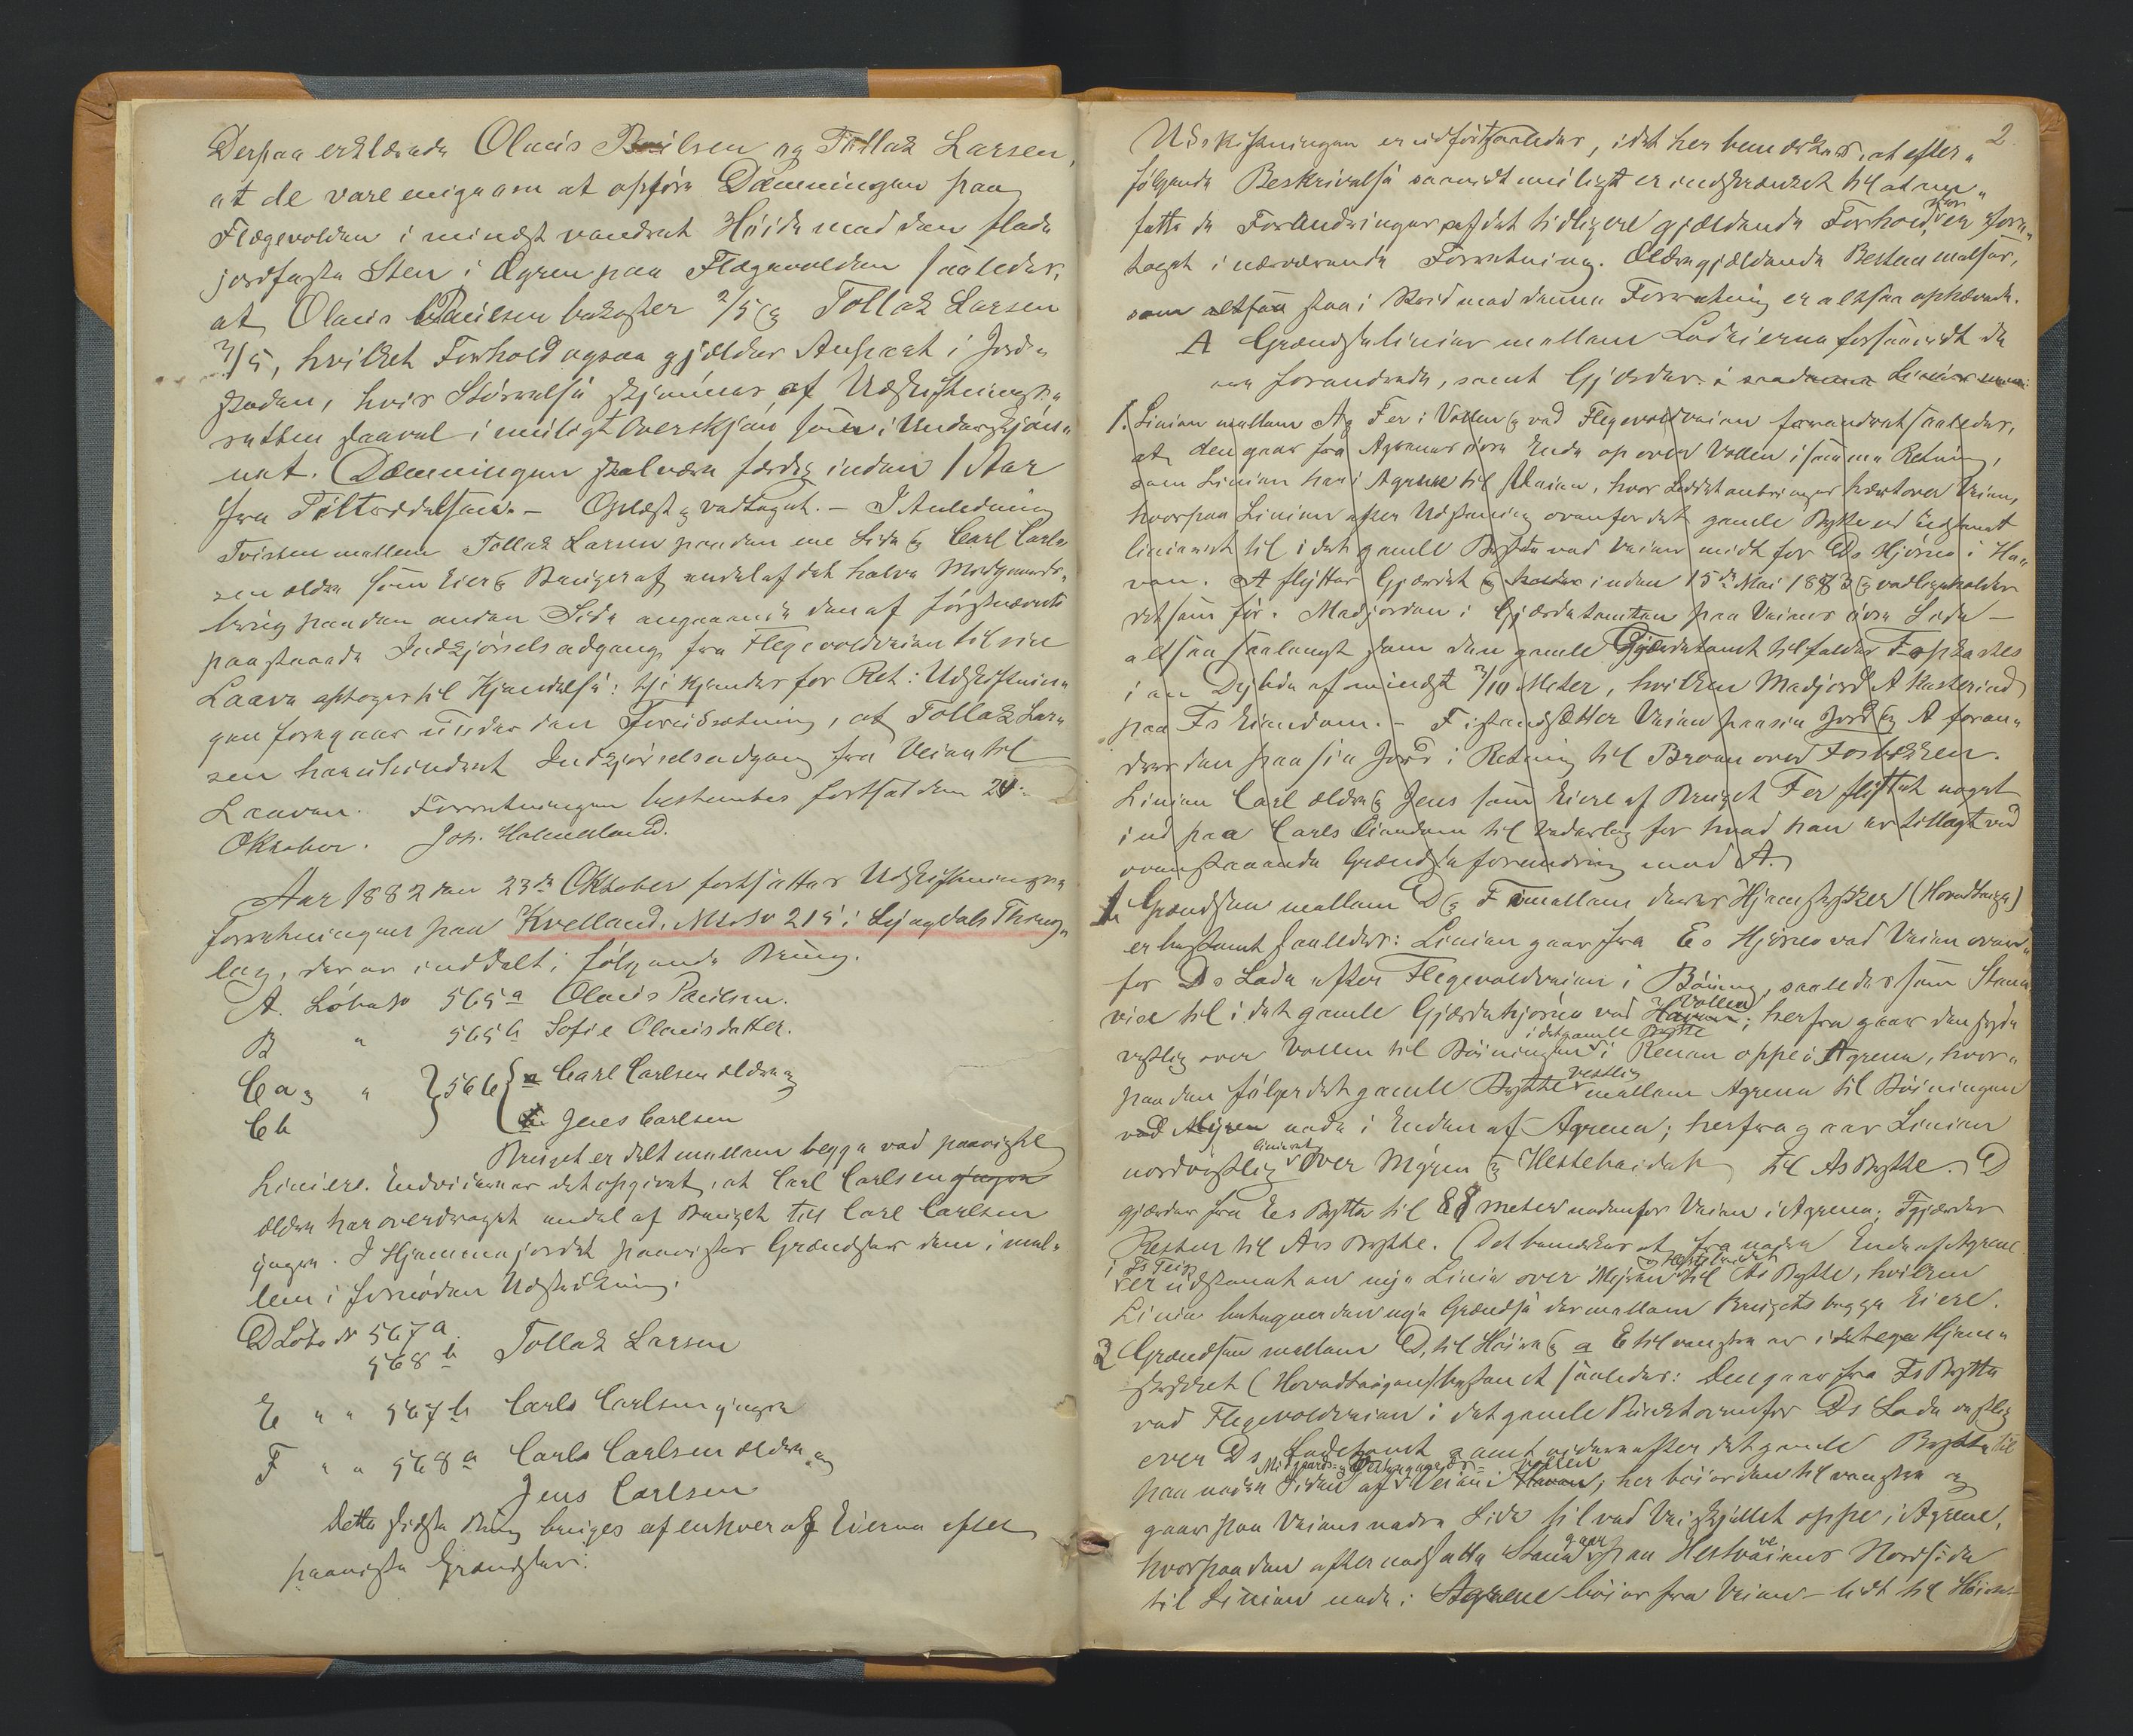 Derpaa erklærede Olaus Paulsen og Tollak Larsen,
at de vare enige om at opføre Dæmningen paa
Flegevolden i mindst vandret Høide med den flade
jordfaste Sten i Ageren paa Flegevolden saaledes,
at Olaus Paulsen bekoster 2/5 og Tollak Larsen
3/5, hvilket Forhold ogsaa gjælder Ansvaret i Jord-
skaden, hvis Størrelse skjønnes af Udskiftnings-
retten saavel i muligt Overskjøn som i Underskjøn-
net. Dæmningen skal være færdig inden 1 Aar
fra Tiltrædelsen. – Oplæst og vedtaget. – I Anledning
Tvisten mellem Tollak Larsen paa den ene Side og Carl Carl-
sen ældre som Eier og Bruger af endel af det halve Midgaards-
brug paa den anden Side angaaende den af førstnævnte
paastaaede Indkjørselsadgang fra Flegevoldveien til sin
Laave optoges til Kjendelse: thi kjendes for Ret: Udskiftnin-
gen foregaar under den Forudsætning, at Tollak Lar-
sen har uhindret Indkjørselsadgang fra Veien til
Laaven. Forretningen bestemtes fortsat den 24de
Oktober. Joh. Holmeland.
Aar 1882 den 23de Oktober fortsattes Udskiftnings-
forretningen paa Kvelland, Mtr No 215 i Lyngdals Thing-
lag, der er inddelt i følgende Brug.
A. Løbe No 565 a Olaus Paulsen.
B " 565 b Sofie Olausdatter.
C a og " } 566 { a Carl Carlsen ældre og
C b b Jens Carlsen
Bruget er delt mellem begge ved paaviste
Linier. Endvidere er det opgivet, at Carl Carlsen yngre
ældre har overdraget endel af Bruget til Carl Carlsen
yngre. I Hjemmejordet paavistes Grændser dem imel-
lem i fornøden Udstrækning.
D Løbe No 567 a
568 b Tollak Larsen
E " " 567 b Carls Carlsen yngre
F " " 568 a Carls Carlsen ældre og
Jens Carlsen
Dette sidste Brug bruges af enhver af Eierne efter
paaviste Grændser.
2.
Udskiftningen er udført saaledes, idet her bemærkes, at efter-
følgende Beskrivelse saavidt muligt er indskrænket til at om-
fatte de Forandringer af det tidligere gjældende Forhold, som er fore-
taget i nærværende Forretning. Ældre gjældende Bestemmelser,
som altsaa staa i Strid med denne Forretning er altsaa ophævede.
A Grændselinier mellem Lodeierne forsaavidt de
ere forandrede, samt Gjærder i saadanne Linier
1. Linien mellem A og F er i Vollen og ved Flegevoldveien forandret saaledes,
at den gaar fra Agerens øvre Ende op over Vollen i samme Retning,
som Linien har i Agrene til Veien, hvor Leddet anbringes tvertover Veien,
hvorpaa Linien efter Udstening ovenfor det gamle Bytte ud udstenet
linieret til i det gamle Bytte ved Veien midt for Ds Hjørne i Ha-
ven. A flytter Gjærdet inden 15de Mai 1883 og vedligeholder
det som før. Madjorden i Gjærdetomten paa Veiens øvre Side –
altsaa saalangt som den gamle Gjærdetomt tilfalder F opkastes
i en Dybde af mindst 3/10 Meter, hvilken Madjord A kaster ind
paa Fs Eiendom. – F istandsætter Veien paa sin Jord og A foran-
drer den paa sin Jord i Retning til Broen over Fosbækken.
Linien Carl ældre og Jens som Eiere af Bruget F er flyttet noget
ind paa Carls Eiendom til Vederlag for hvad han er tillagt ved
ovenstaaende Grændseforandring med A.
1. Grændsen mellem D og F imellem deres Hjemstykker (Hovedteige)
er bestemt saaledes: Linien gaar fra Es Hjørne ved Veien oven-
for Ds Lade efter Flegevoldveien i Bøining, saaledes som Stene
vise til i det gamle Gjærdehjørne ved Vollen; herfra gaar den syd-
vestlig over Vollen til Bøiningen i det gamle Bytte i Renen oppe i Agrene, hvor-
paa den følger det gamle Bytte vestlig mellem Agrene til Bøiningen
ved Myren nede i Enden af Agrene; herfra gaar Linien
nordvestlig linieret over Myren og Hestehaidet til As Bytte. D
gjærder fra Es Bytte til 88 Meter nedenfor Veien i Agrene; F gjærder
Resten til As Bytte. (Det bemærkes at fra nedre Ende af Agrene
i Fs Teig er udstenet en nye Linie over Myren og Hestehaidet til As Bytte, hvilken
Linie betegner den nye Grændse der mellem Brugets begge Eiere.
2 Grændsen mellem D, til Høire og E til venstre er i det Hjem-
stykket (Hovedteigen) bestemt saaledes: Den gaar fra Fs Bytte
ved Flegevoldveien i det gamle Punkt ovenfor Ds Lade vestlig
over Ds Ladetomt samt videre efter det gamle Bytte til
paa nedre Siden af Midgaards- og Vestre Veien i Vollen; her bøier den til venstre og
gaar paa Veiens nedre Side til ved Veiskjellet oppe i Agrene,
hvorpaa den efter nedsatte Stene gaar paa Hestveiens Nordside
til Linien nede i Agrene bøier fra Veien – lidt til Høire